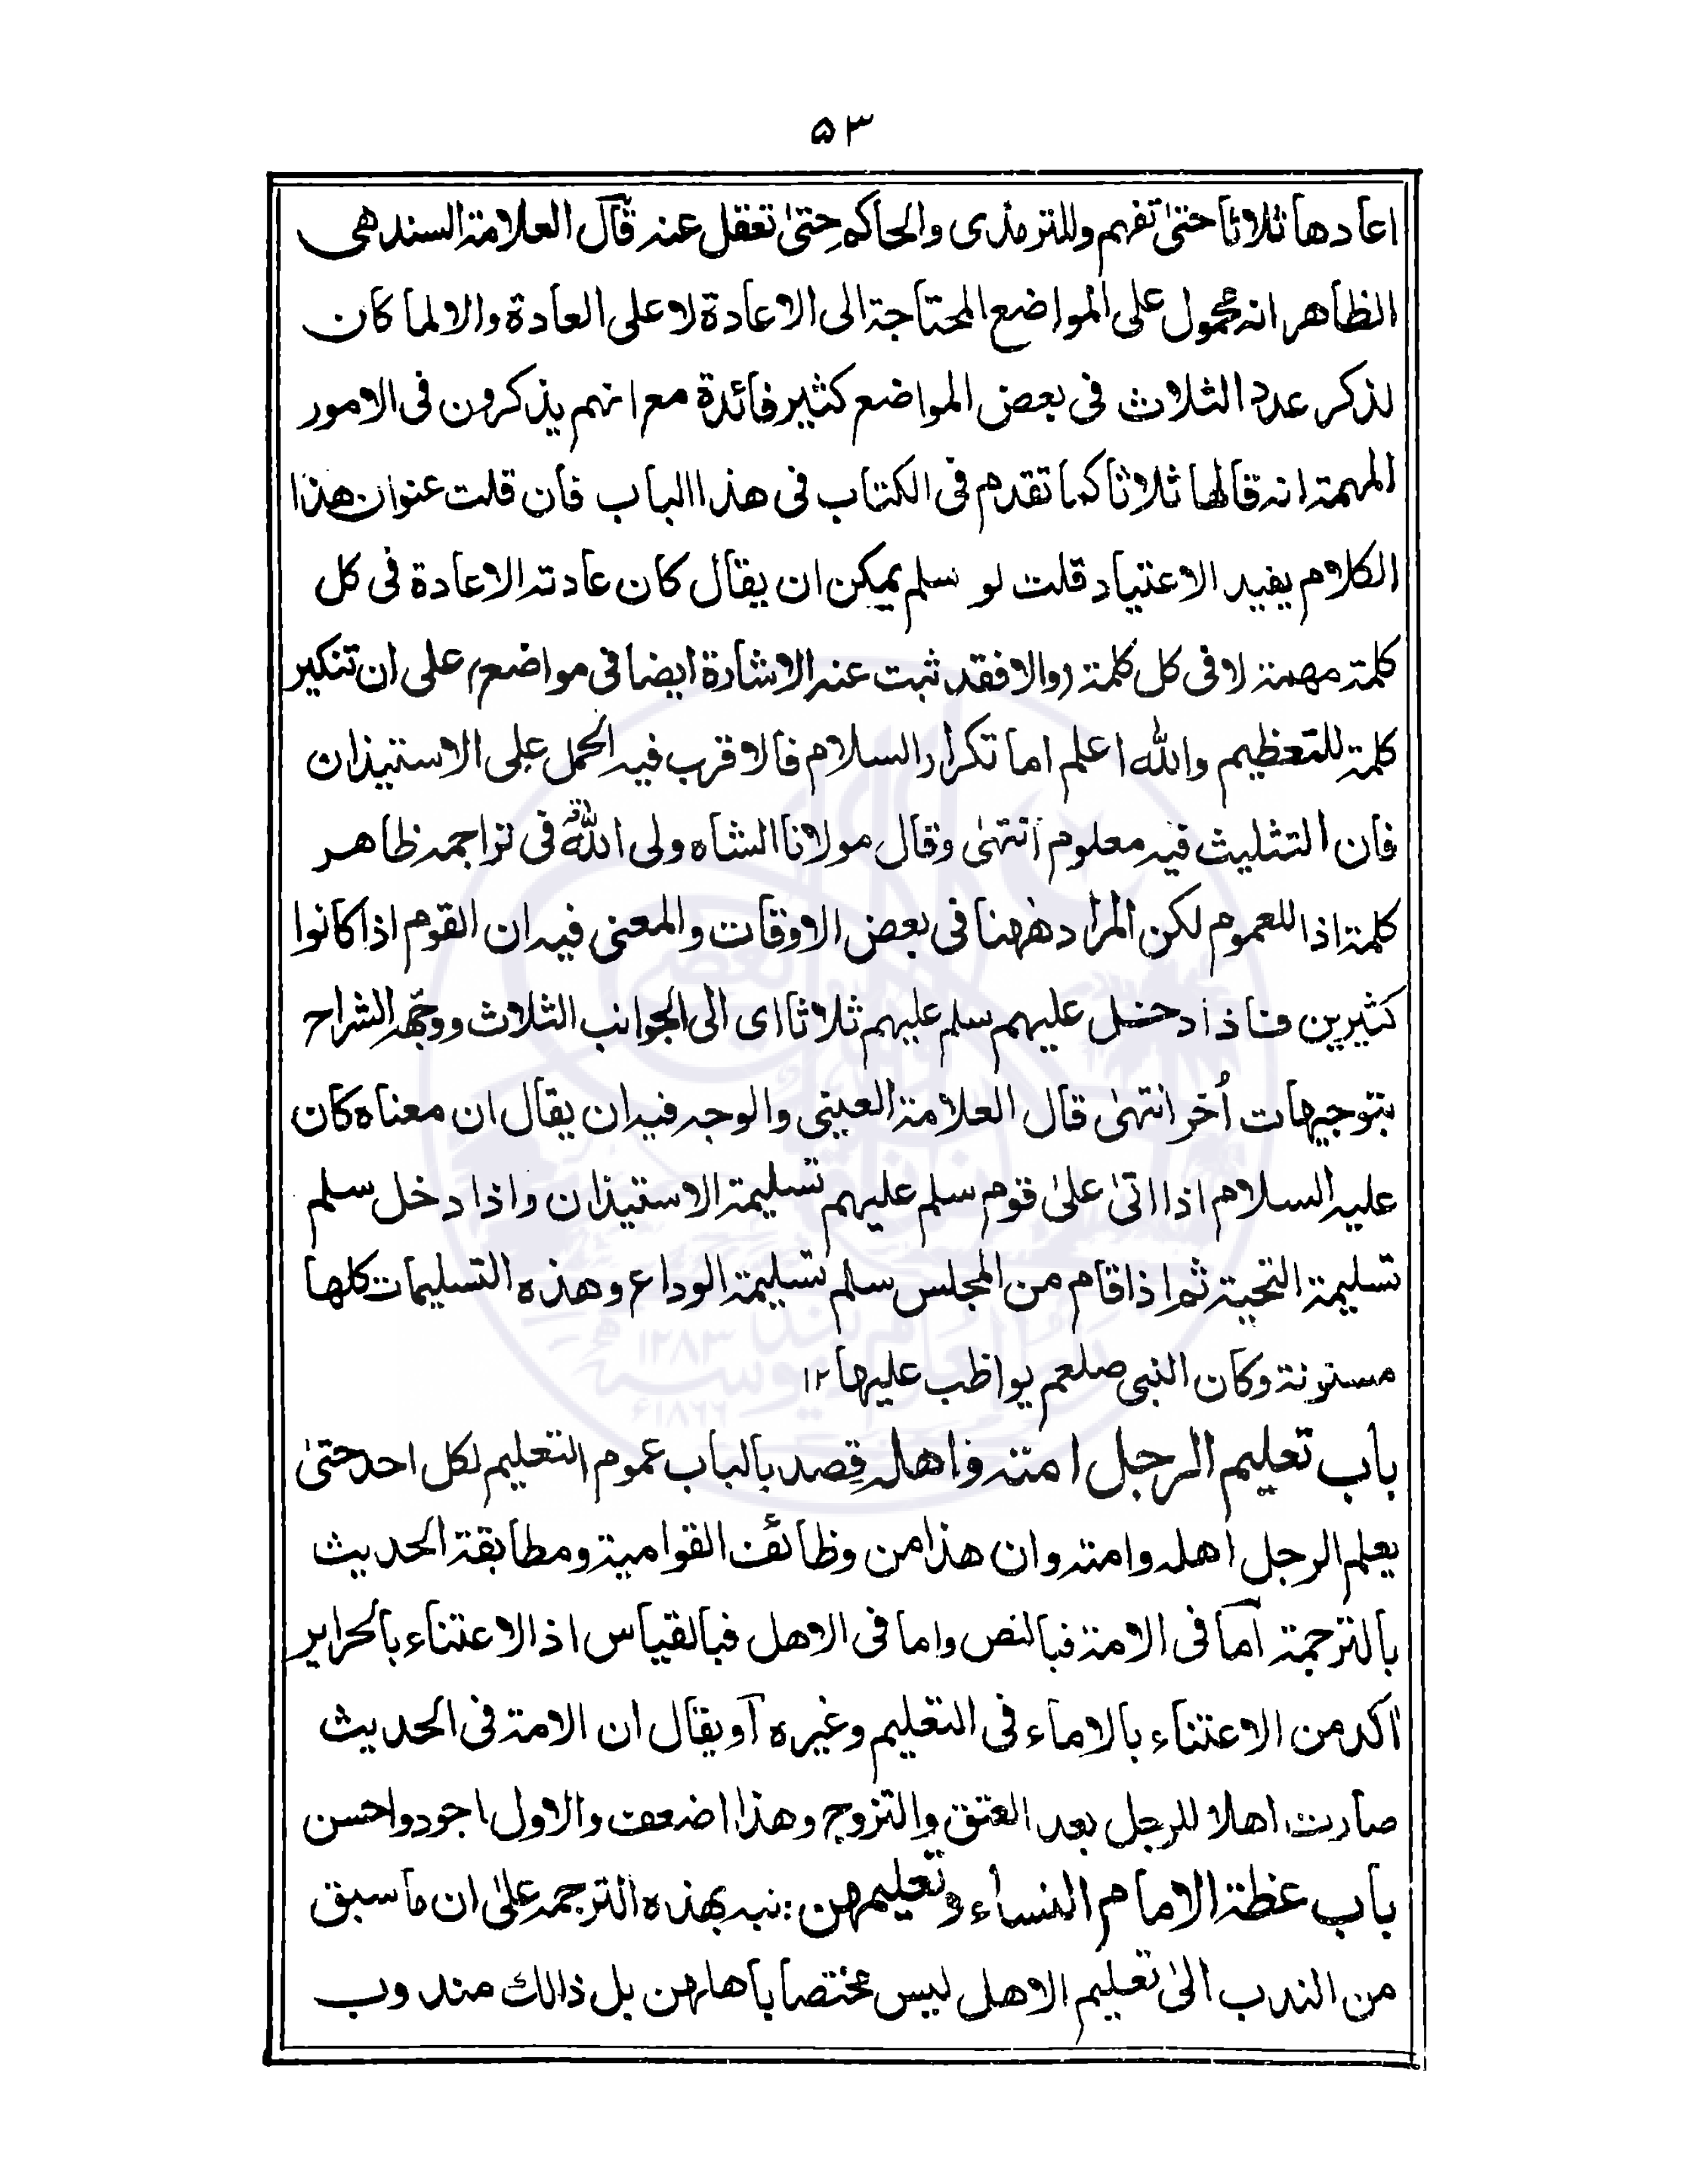 ۵۳
اعادها ثلاثا حتىٰ تفهم وللترمذى والحاكم حتىٰ تعقل عنه قال العلامة السندهى
الظاهر انه محمول على المواضع المحتاجة الى الاعادة لا على العادة والا لما كان
لذكر عدد الثلاث فى بعض المواضع كثير فائدة مع انهم يذكرون فى الامور
المهمة انه قالها ثلاثا كما تقدم فى الكتاب فى هذا الباب فان قلت عنوان هذا
الكلام يفيد الاعتياد قلت لو سلم يمكن ان يقال كان عادته الاعادة فى كل
كلمة مهمة لا فى كل كلمة (والا فقد ثبت عنه الاشارة ايضا فى مواضع) على ان تنكير
كلمة للتعظيم والله اعلم اما تكرار السلام فالاقرب فيه الحمل على الاستيذان
فان التثليث فيه معلوم انتهىٰ وقال مولانا الشاه ولى اللهؒ فى تراجمه ظاهر
كلمة اذا للعموم لكن المراد ههنا فى بعض الاوقات والمعنى فيه ان القوم اذا كانوا
كثيرين فاذا دخل عليهم سلم عليهم ثلاثا اى الى الجوانب الثلاث ووجّهه الشراح
بتوجيهات أُخر انتهىٰ قال العلامة العينى والوجه فيه ان يقال ان معناه كان
عليه السلام اذا اتىٰ علىٰ قوم سلم عليهم تسليمة الاستيذان واذا دخل سلم
تسليمة التحية ثم اذا قام من المجلس سلم تسليمة الوداع وهذه التسليمات كلها
مسنونة وكان النبى صلعم يواظب عليها ۱۲
باب تعليم الرجل امته واهله قصد بالباب عموم التعليم لكل احد حتىٰ
يعلم الرجل اهله وامته وان هذا من وظائف القوامية ومطابقة الحديث
بالترجمة اما فى الامة فبالنص واما فى الاهل فبالقياس اذ الاعتناء بالحراير
اكد من الاعتناء بالاماء فى التعليم وغيره او يقال ان الامة فى الحديث
صارت اهلا للرجل بعد العتق والتزوج وهذا اضعف والاول اجود واحسن
باب عظة الامام النساء وتعليمهن : نبه بهذه الترجمة علىٰ ان ما سبق
من الندب الىٰ تعليم الاهل ليس مختصا باهلهن بل ذالك مندوب